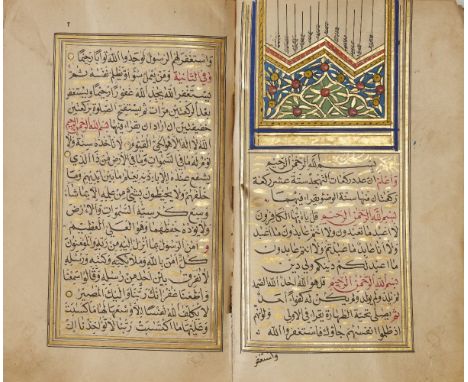 بسم الله الرحمن الرحيم
واعلم ان عدد ركعات التهجد ستة عشر ركعة
بسم الله الرحمن الرحيم قل يا ايها الكافرون
لا اعبد ما تعبدون ولا انتم عابدون ما اعبد
ولا انا عابد ما عبدتم ولا انتم عابدون
ما اعبد لكم دينكم ولي دين
بسم الله الرحمن الرحيم قل هو الله احد الله الصمد
لم يلد ولم يولد ولم يكن له كفوا احد
ثم يصلي تحية الطهارة يقرأ في الاولى ولو انهم
اذ ظلموا انفسهم جاؤك فاستغفروا الله
واستغفر
٢
واستغفر لهم الرسول لوجدوا الله توابا رحيما
وفي الثانية ومن يعمل سوءا او يظلم نفسه ثم
يستغفر الله يجد الله غفورا رحيما ويستغفر
بعد الركعتين مرات ثم يستفتح الصلوة بركعتين
خفيفتين بسم الله الرحمن الرحيم
الله لا اله الا هو الحي القيوم لا تاخذه سنة ولا
نوم له ما في السموات وما في الارض من ذا الذي
يشفع عنده الا باذنه يعلم ما بين ايديهم وما
خلفهم ولا يحيطون بشيء من علمه الا بما شاء
وسع كرسيه السموات والارض
ولا يؤده حفظهما وهو العلي العظيم
امن الرسول بما انزل اليه من ربه والمؤمنون
كل امن بالله وملائكته وكتبه ورسله
لا نفرق بين احد من رسله وقالوا سمعنا
واطعنا غفرانك ربنا واليك المصير
لا يكلف الله نفسا الا وسعها لها ما كسبت
وعليها ما اكتسبت ربنا لا تؤاخذنا ان